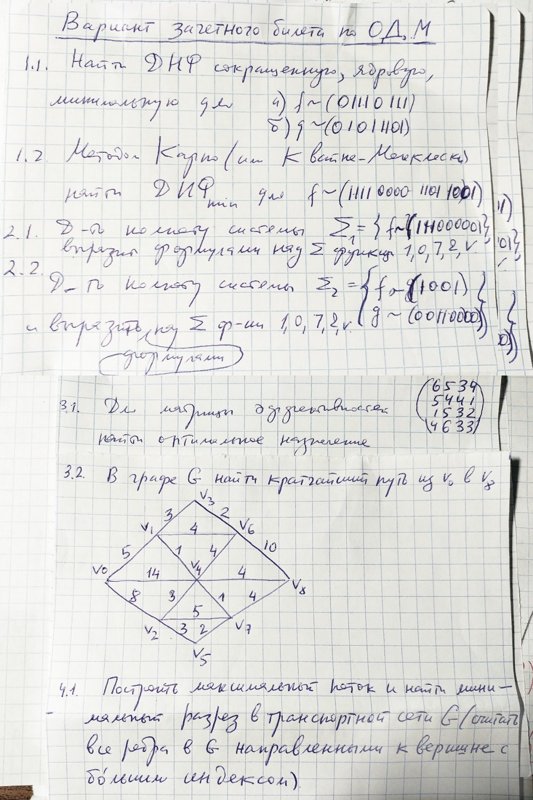 Вариант зачетного билета по ОДМ
1.1. Найти ДНФ сокращенную, ядровую,
минимальную для а) f~(01110111)
б) g~(01011101)
1.2 Методом Карно (или Квайна-Маккласки)
найти ДНФmin для f~(1111 0000 1101 1001)
2.1. Д-ть полноту системы Σ1={f~(11100000)},
выразить формулами над Σ функции 1,0,7,2,v
2.2. Д-ть полноту системы Σ2={f~(1001)
g~(00110000)}
и выразить над Σ ф-ии 1,0,7,2,v
формулами
11)
101}
0)}
3.1. Для матрицы эффективностей
найти оптимальное назначение
(6534
5441
1532
4633)
3.2. В графе G найти кратчайший путь из v0 в v8
v3
3 2
v1 4 v6
5 1 4 10
v0 14 v4 4 v8
8 3 1 4
v2 5 v7
3 2
v5
4.1. Построить максимальный поток и найти мини-
мальный разрез в транспортной сети G (считать
все ребра в G направленными к вершине с
бóльшим индексом).